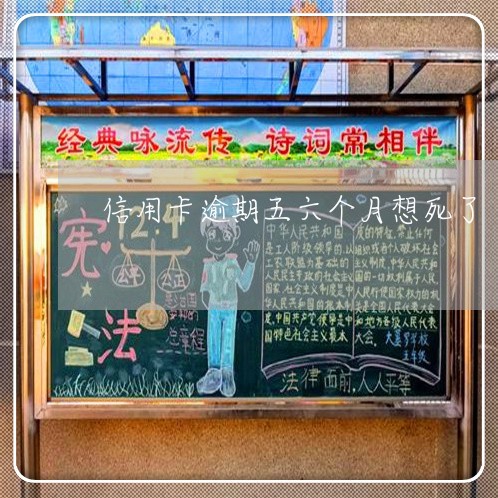 经典咏流传 诗词常相伴
信用卡逾期五六个月想死了
宪法
12.4
公平
公正
总章程
中华人民共和国
是工人阶级领导的,以
工农联盟为基础的
人民民主专政的社会主义
国家,社会主义制度是中
华人民共和国的根本制
度,中国共产党领导是中
国特色社会主义最本
质的特征,禁止任何
组织或者个人破坏社会
主义制度,中华人民共和
国的一切权利属于人民,
人民行使国家权力的机
关是全国人民代表大会
和地方各级人民代表
大会.
五年级
法律面前,人人平等